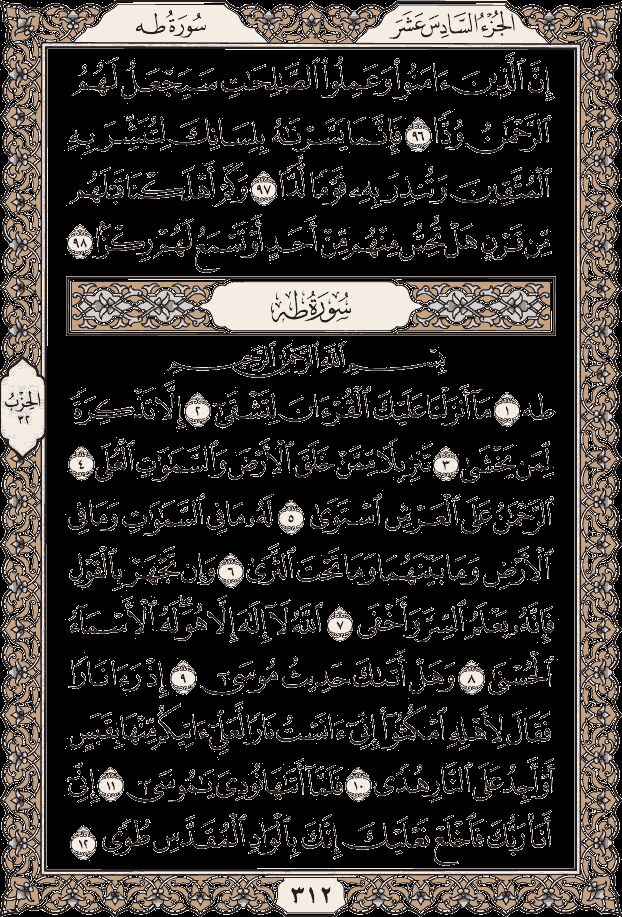 الجزء السادس عشر
سورة طه
إِنَّ ٱلَّذِينَ ءَامَنُوا۟ وَعَمِلُوا۟ ٱلصَّـٰلِحَـٰتِ سَيَجْعَلُ لَهُمُ
ٱلرَّحْمَـٰنُ وُدًّا ٩٦ فَإِنَّمَا يَسَّرْنَـٰهُ بِلِسَانِكَ لِتُبَشِّرَ بِهِ
ٱلْمُتَّقِينَ وَتُنذِرَ بِهِۦ قَوْمًا لُّدًّا ٩٧ وَكَمْ أَهْلَكْنَا قَبْلَهُم
مِّن قَرْنٍ هَلْ تُحِسُّ مِنْهُم مِّنْ أَحَدٍ أَوْ تَسْمَعُ لَهُمْ رِكْزًۢا ٩٨
سُورَةُ طه
بِسْمِ ٱللَّهِ ٱلرَّحْمَـٰنِ ٱلرَّحِيمِ
طه ١ مَآ أَنزَلْنَا عَلَيْكَ ٱلْقُرْءَانَ لِتَشْقَىٰٓ ٢ إِلَّا تَذْكِرَةً
لِّمَن يَخْشَىٰ ٣ تَنزِيلًا مِّمَّنْ خَلَقَ ٱلْأَرْضَ وَٱلسَّمَـٰوَٰتِ ٱلْعُلَى ٤
ٱلرَّحْمَـٰنُ عَلَى ٱلْعَرْشِ ٱسْتَوَىٰ ٥ لَهُۥ مَا فِى ٱلسَّمَـٰوَٰتِ وَمَا فِى
ٱلْأَرْضِ وَمَا بَيْنَهُمَا وَمَا تَحْتَ ٱلثَّرَىٰ ٦ وَإِن تَجْهَرْ بِٱلْقَوْلِ
فَإِنَّهُۥ يَعْلَمُ ٱلسِّرَّ وَأَخْفَى ٧ ٱللَّهُ لَآ إِلَـٰهَ إِلَّا هُوَ ۖ لَهُ ٱلْأَسْمَآءُ
ٱلْحُسْنَىٰ ٨ وَهَلْ أَتَىٰكَ حَدِيثُ مُوسَىٰٓ ٩ إِذْ رَءَا نَارًا
فَقَالَ لِأَهْلِهِ ٱمْكُثُوٓا۟ إِنِّىٓ ءَانَسْتُ نَارًا لَّعَلِّىٓ ءَاتِيكُم مِّنْهَا بِقَبَسٍ
أَوْ أَجِدُ عَلَى ٱلنَّارِ هُدًى ١٠ فَلَمَّآ أَتَىٰهَا نُودِىَ يَـٰمُوسَىٰٓ ١١ إِنِّىٓ
أَنَا۠ رَبُّكَ فَٱخْلَعْ نَعْلَيْكَ ۖ إِنَّكَ بِٱلْوَادِ ٱلْمُقَدَّسِ طُوًى ١٢
الحزب
٣٢
٣١٢